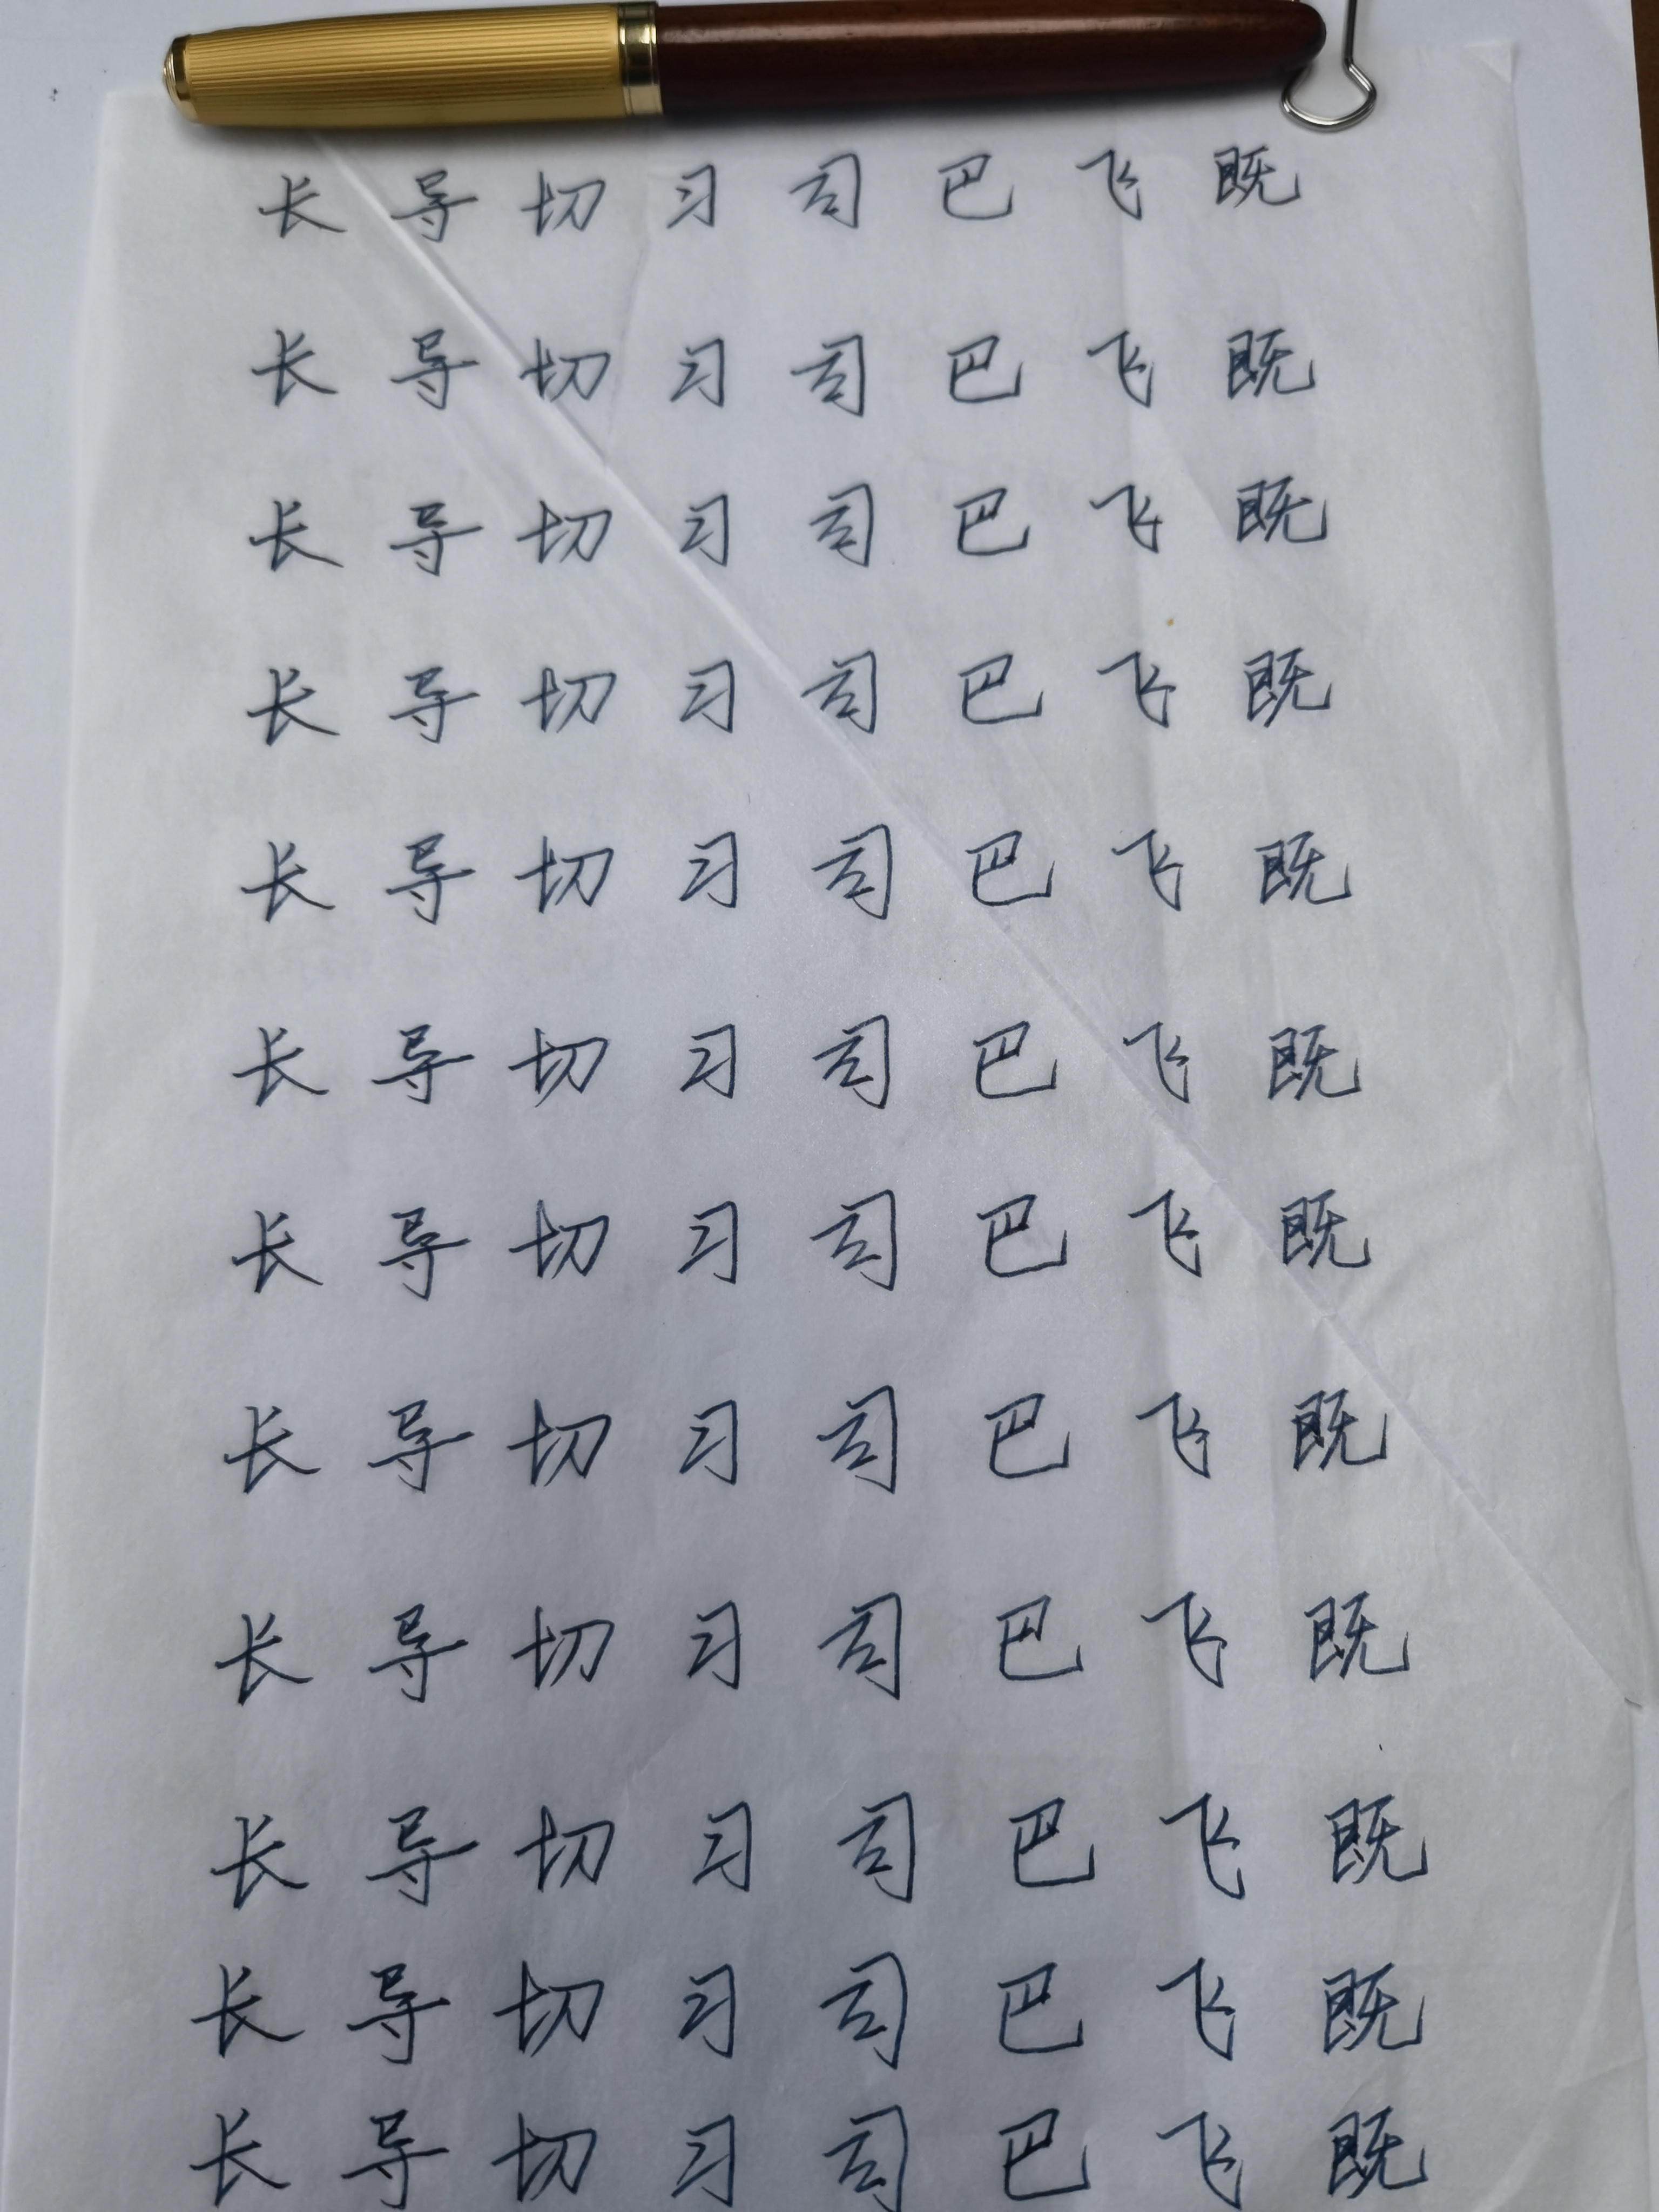 长 导 切 习 司 巴 飞 既
长 导 切 习 司 巴 飞 既
长 导 切 习 司 巴 飞 既
长 导 切 习 司 巴 飞 既
长 导 切 习 司 巴 飞 既
长 导 切 习 司 巴 飞 既
长 导 切 习 司 巴 飞 既
长 导 切 习 司 巴 飞 既
长 导 切 习 司 巴 飞 既
长 导 切 习 司 巴 飞 既
长 导 切 习 司 巴 飞 既
长 导 切 习 司 巴 飞 既